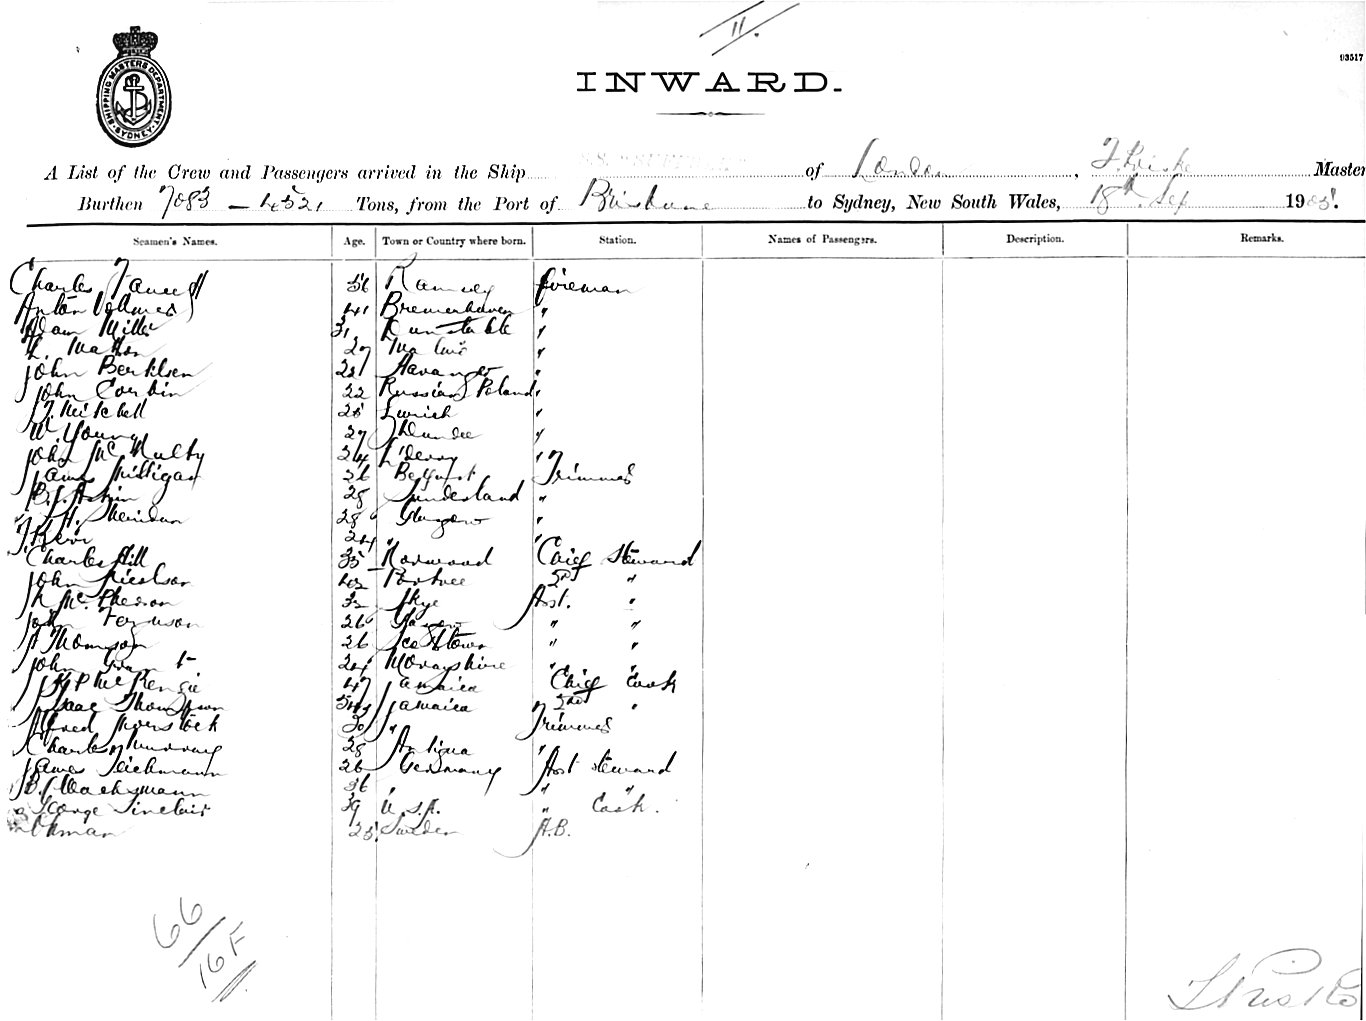 II.
03517
SHIPPING MASTERS DEPARTMENT SYDNEY
INWARD.
A List of the Crew and Passengers arrived in the Ship of London, Master
Burthen 7083 – 4521 Tons, from the Port of Brisbane to Sydney, New South Wales, 18th Sep 1905.
Seamen's Names. Age. Town or Country where born. Station. Names of Passengers. Description. Remarks.
Charles 36 Ramsey fireman
Anton Vollmers 41 Bremerhaven "
Adam Mills 31 Dunstable "
Matson 27 "
John Bertilsen 28 Stavanger "
John Corbin 22 Russian Poland "
J. Mitchell 28 "
W. Young 27 Dundee "
John McNulty 24 L'derry "
James Milligan 26 Belfast Trimmer
28 Sunderland "
H. Sheridan 28 Glasgow "
J. Kerr 24 " "
Charles Hill 35 Norwood Chief Steward
John Nicolson 42 Portree 2nd "
McPherson 32 Skye Asst. "
John Ferguson 26 Glasgow " "
A Thomson 26 Scotstown " "
John Grant 24 Morayshire " "
McKenzie 47 Jamaica Chief Cook
Isaac Thompson Jamaica 2nd "
Alfred 30 " Trimmer
Charles Murray 28 Antigua "
James Teichmann 26 Germany Asst steward
B. Wachsmann 36 " " "
George Sinclair 39 U.S.A. " Cook.
Ohman 25 Sweden A.B.
66
16 F